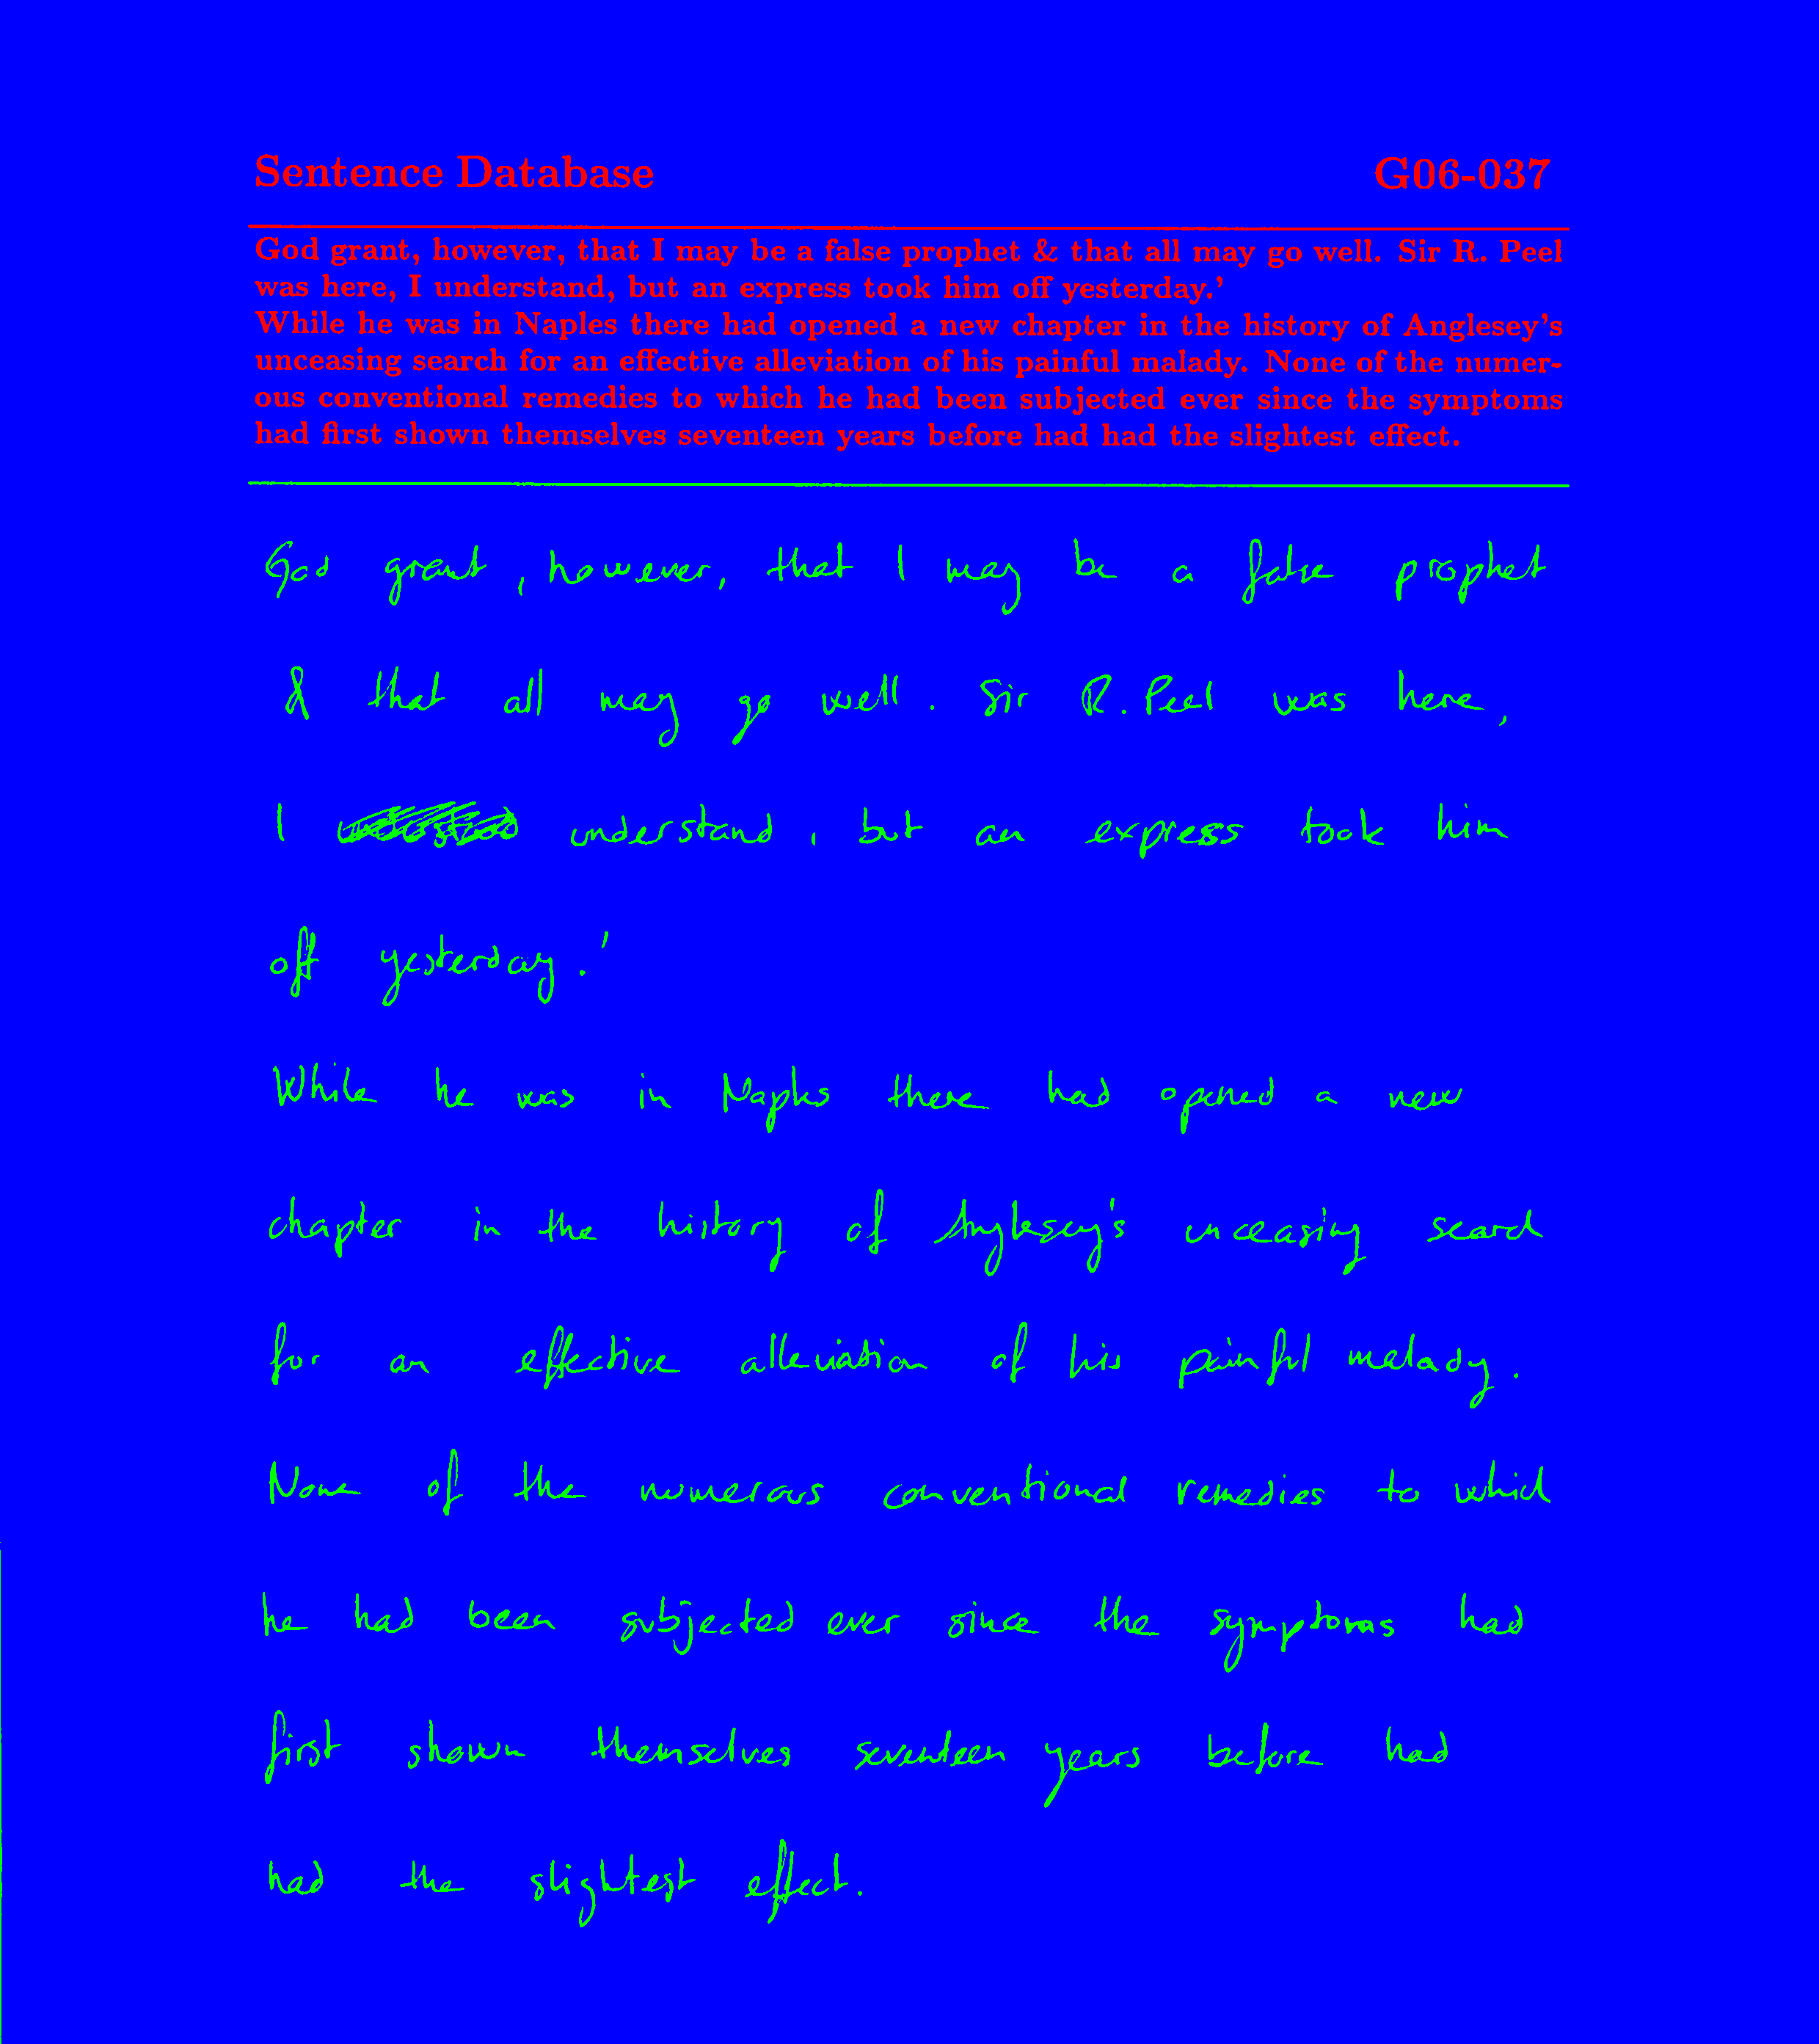 Sentence Database G06-037
God grant, however, that I may be a false prophet & that all may go well. Sir R. Peel
was here, I understand, but an express took him off yesterday.'
While he was in Naples there had opened a new chapter in the history of Anglesey's
unceasing search for an effective alleviation of his painful malady. None of the numer-
ous conventional remedies to which he had been subjected ever since the symptoms
had first shown themselves seventeen years before had had the slightest effect.
God grant, however, that I may be a false prophet
& that all may go well. Sir R. Peel was here,
I understand, but an express took him
off yesterday.'
While he was in Naples there had opened a new
chapter in the history of Anglesey's unceasing search
for an effective alleviation of his painful malady.
None of the numerous conventional remedies to which
he had been subjected ever since the symptoms had
first shown themselves seventeen years before had
had the slightest effect.